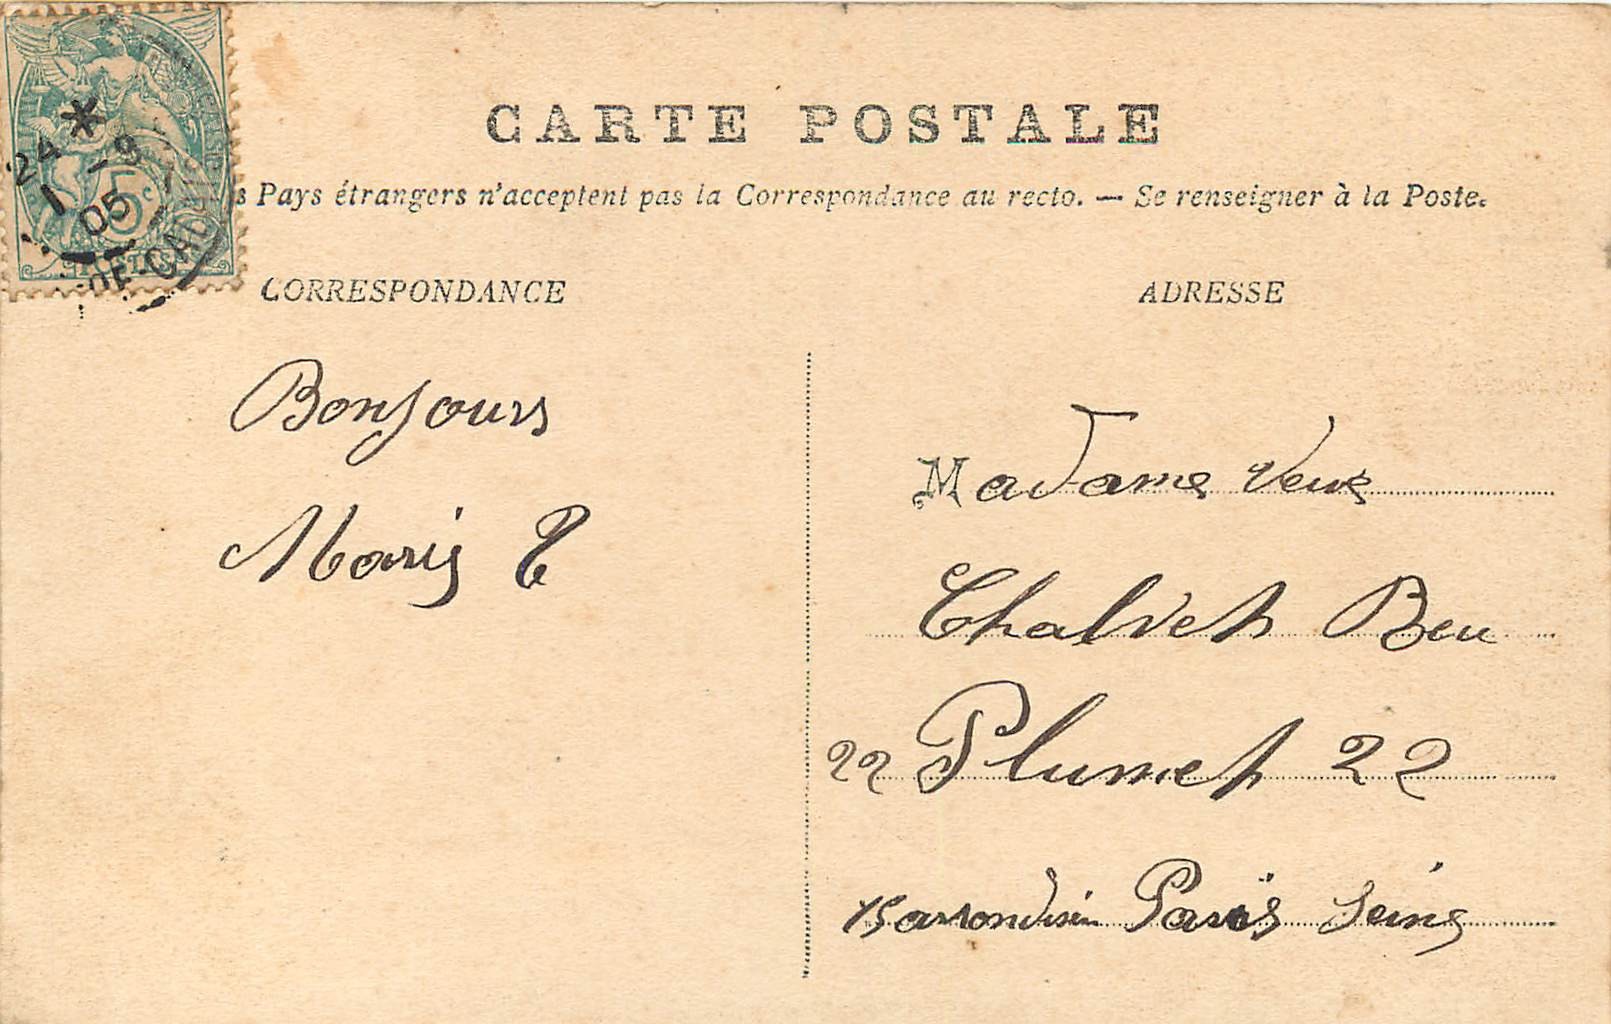 CARTE POSTALE
s Pays étrangers n'acceptent pas la Correspondance au recto. — Se renseigner à la Poste.
24 1 -9 05
5c
POSTES
CORRESPONDANCE
ADRESSE
Bonjours
Marie C
Madame Veuve
Chalvet Reu
22 Plumet 22
15 arrondisin Paris Seine